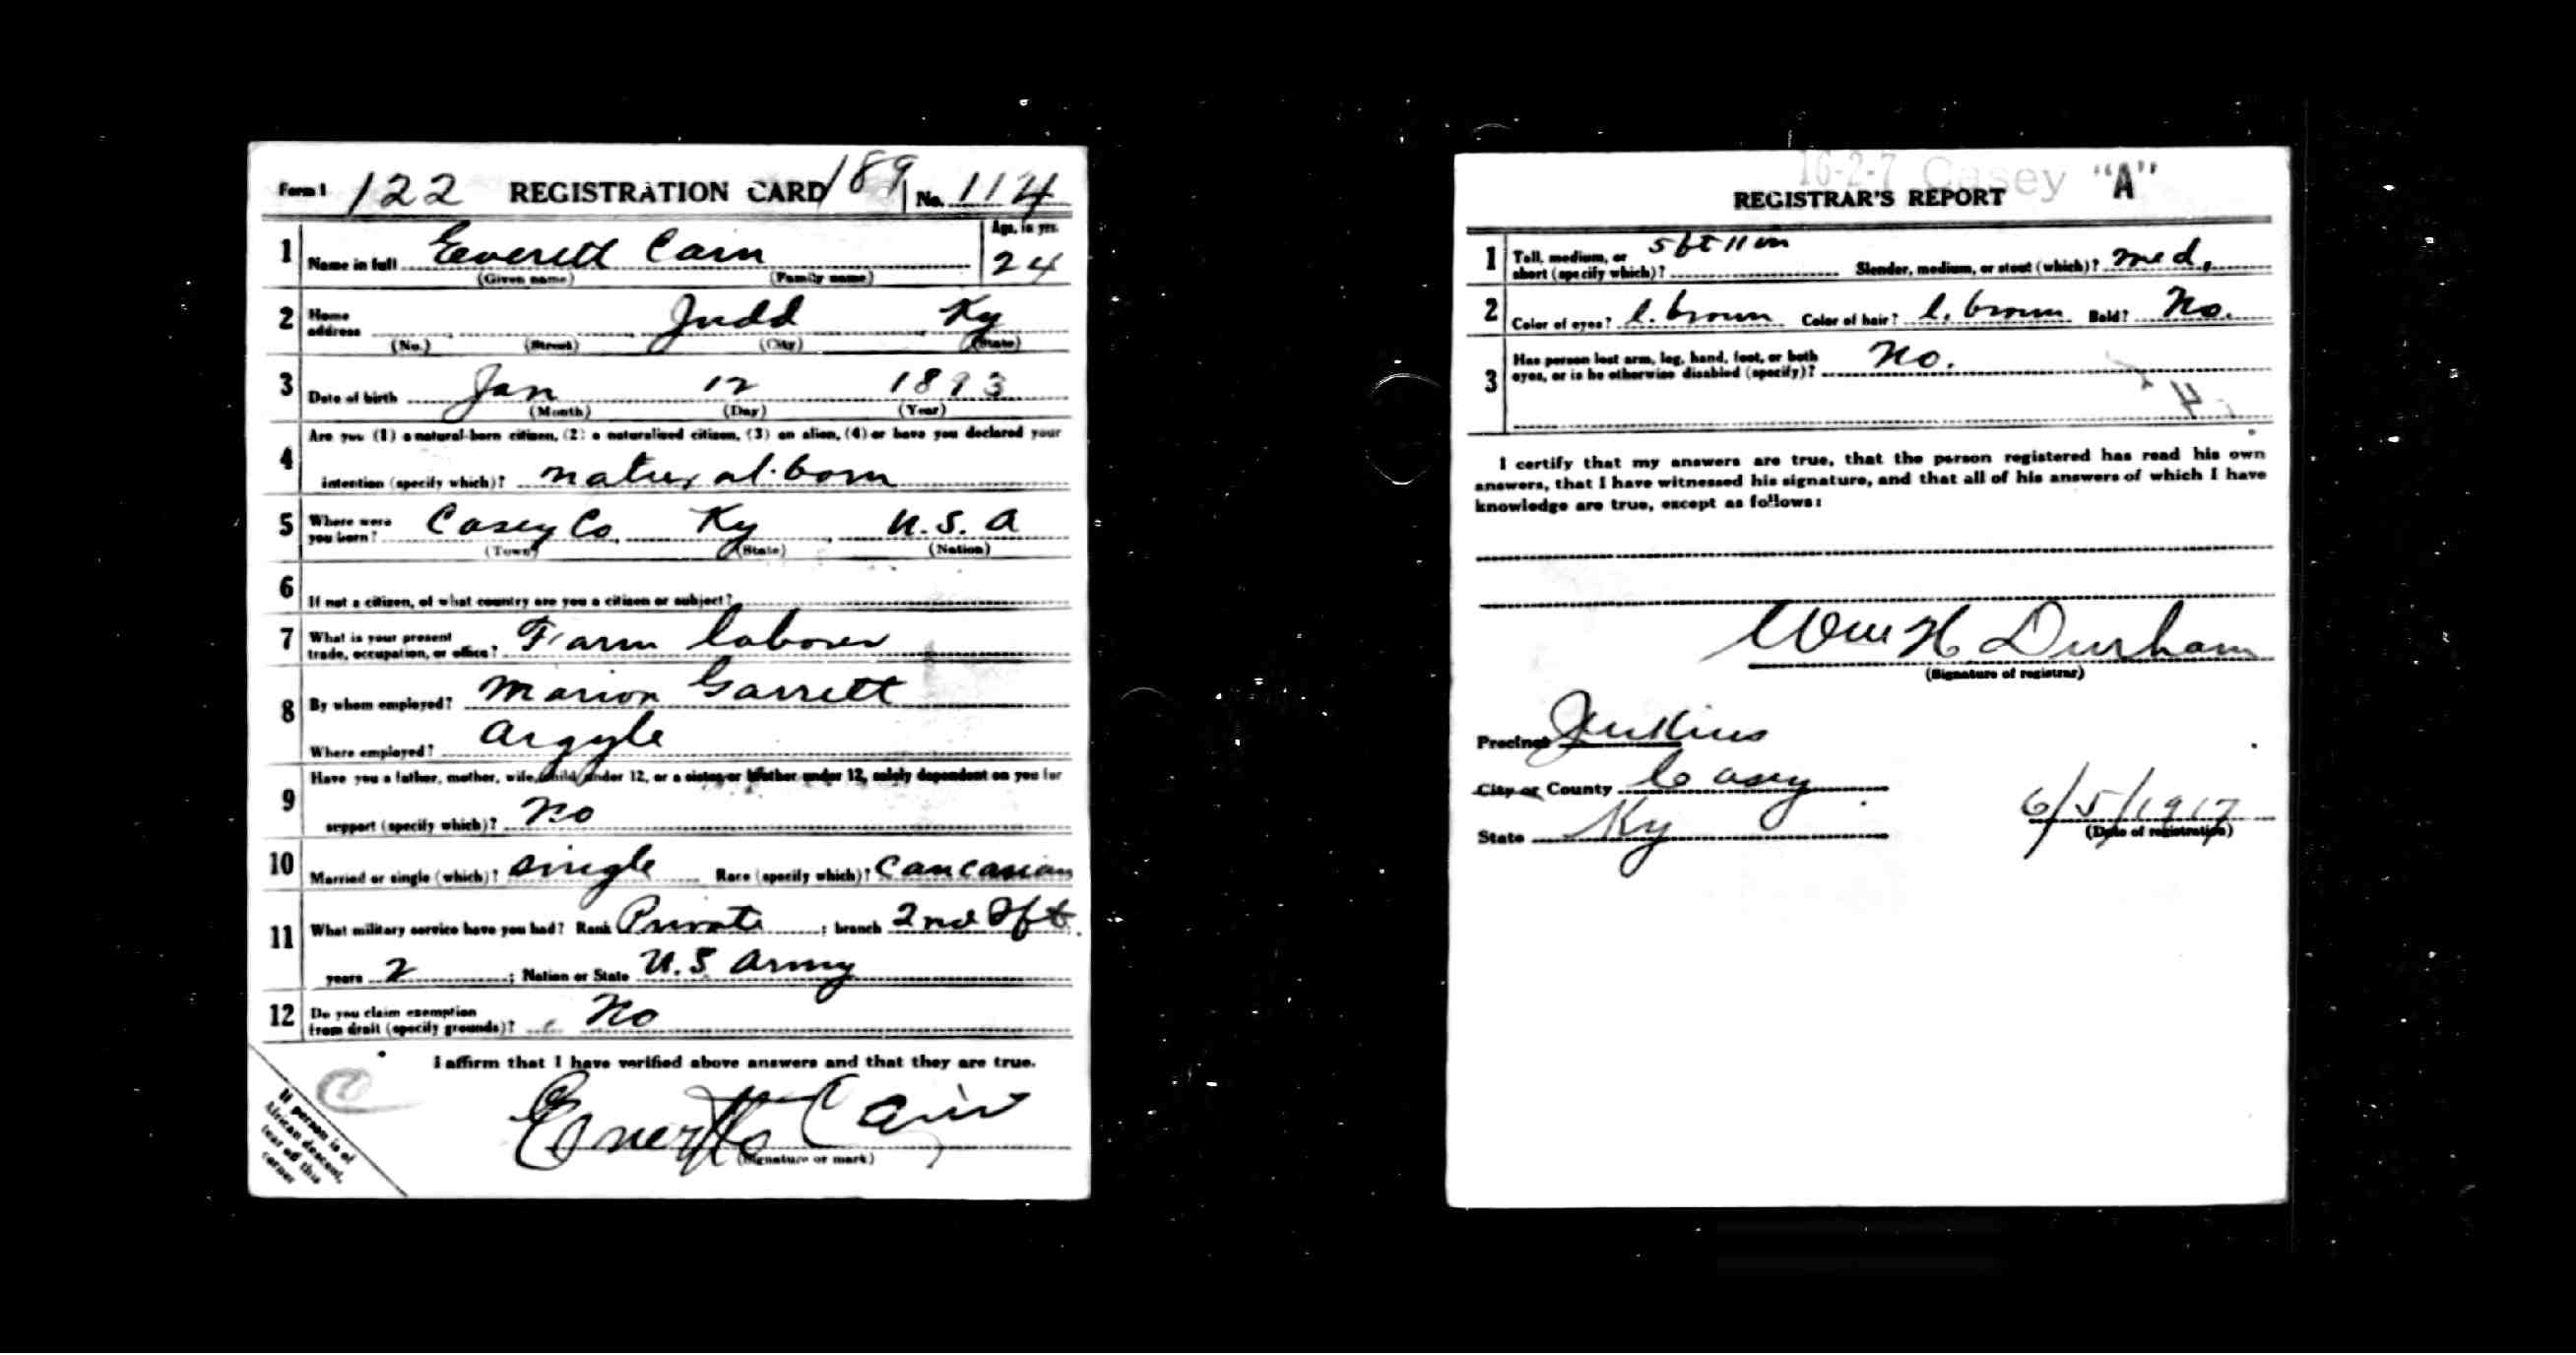 Form 1 122 REGISTRATION CARD 189 No. 114
1 Name in full Eeverett Cain Age, in yrs. 24
(Given name) (Family name)
2 Home address Judd Ky
(No.) (Street) (City) (State)
3 Date of birth Jan 12 1893
(Month) (Day) (Year)
4 Are you (1) a natural-born citizen, (2) a naturalized citizen, (3) an alien, (4) or have you declared your
intention (specify which)? natural born
5 Where were you born? Casey Co, Ky, U.S. A
(Town) (State) (Nation)
6 If not a citizen, of what country are you a citizen or subject?
7 What is your present trade, occupation, or office? Farm laborer
8 By whom employed? Marion Garrett
Where employed? Argyle
9 Have you a father, mother, wife, child under 12, or a sister or brother under 12, solely dependent on you for
support (specify which)? No
10 Married or single (which)? single Race (specify which)? Caucasian
11 What military service have you had? Rank Private ; branch 2nd
years 2 ; Nation or State U.S. Army
12 Do you claim exemption from draft (specify grounds)? No
I affirm that I have verified above answers and that they are true.
Everett Cain
(Signature or mark)
If person is of
African descent,
tear off this
corner
16-2-7 Casey "A"
REGISTRAR'S REPORT
1 Tall, medium, or short (specify which)? 5 ft 11 in Slender, medium, or stout (which)? med.
2 Color of eyes? l. brown Color of hair? l. brown Bald? No.
3 Has person lost arm, leg, hand, foot, or both eyes, or is he otherwise disabled (specify)? No.
I certify that my answers are true, that the person registered has read his own
answers, that I have witnessed his signature, and that all of his answers of which I have
knowledge are true, except as follows:
Wm H Durham
(Signature of registrar)
Precinct Jenkins
City or County Casey
State Ky
6/5/1917
(Date of registration)